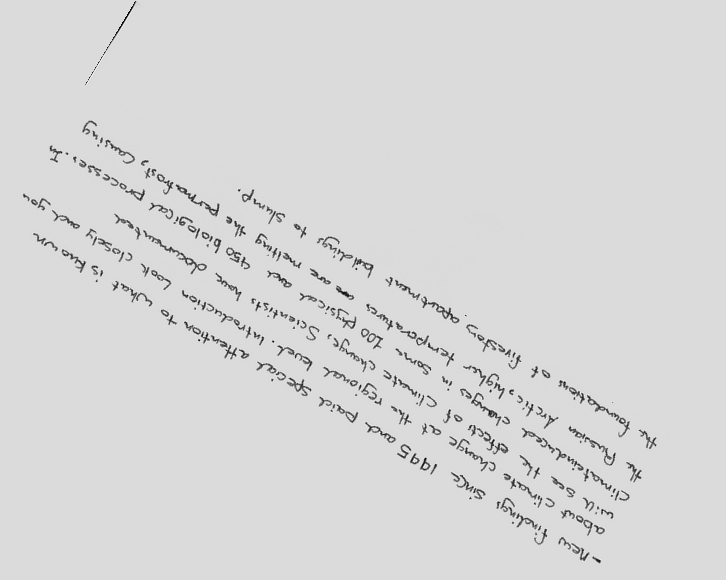 - New findings since 1995 and paid special attention to what is known
about climate change at the regional level. Introduction Look closely and you
will see the effects of climate change, Scientists have documented
climateinduced changes in some 100 physical and 450 biological processes. In
the Russian Arctic, higher temperatures are melting the permafrost, causing
the foundations of fivestory apartment buildings to slump.